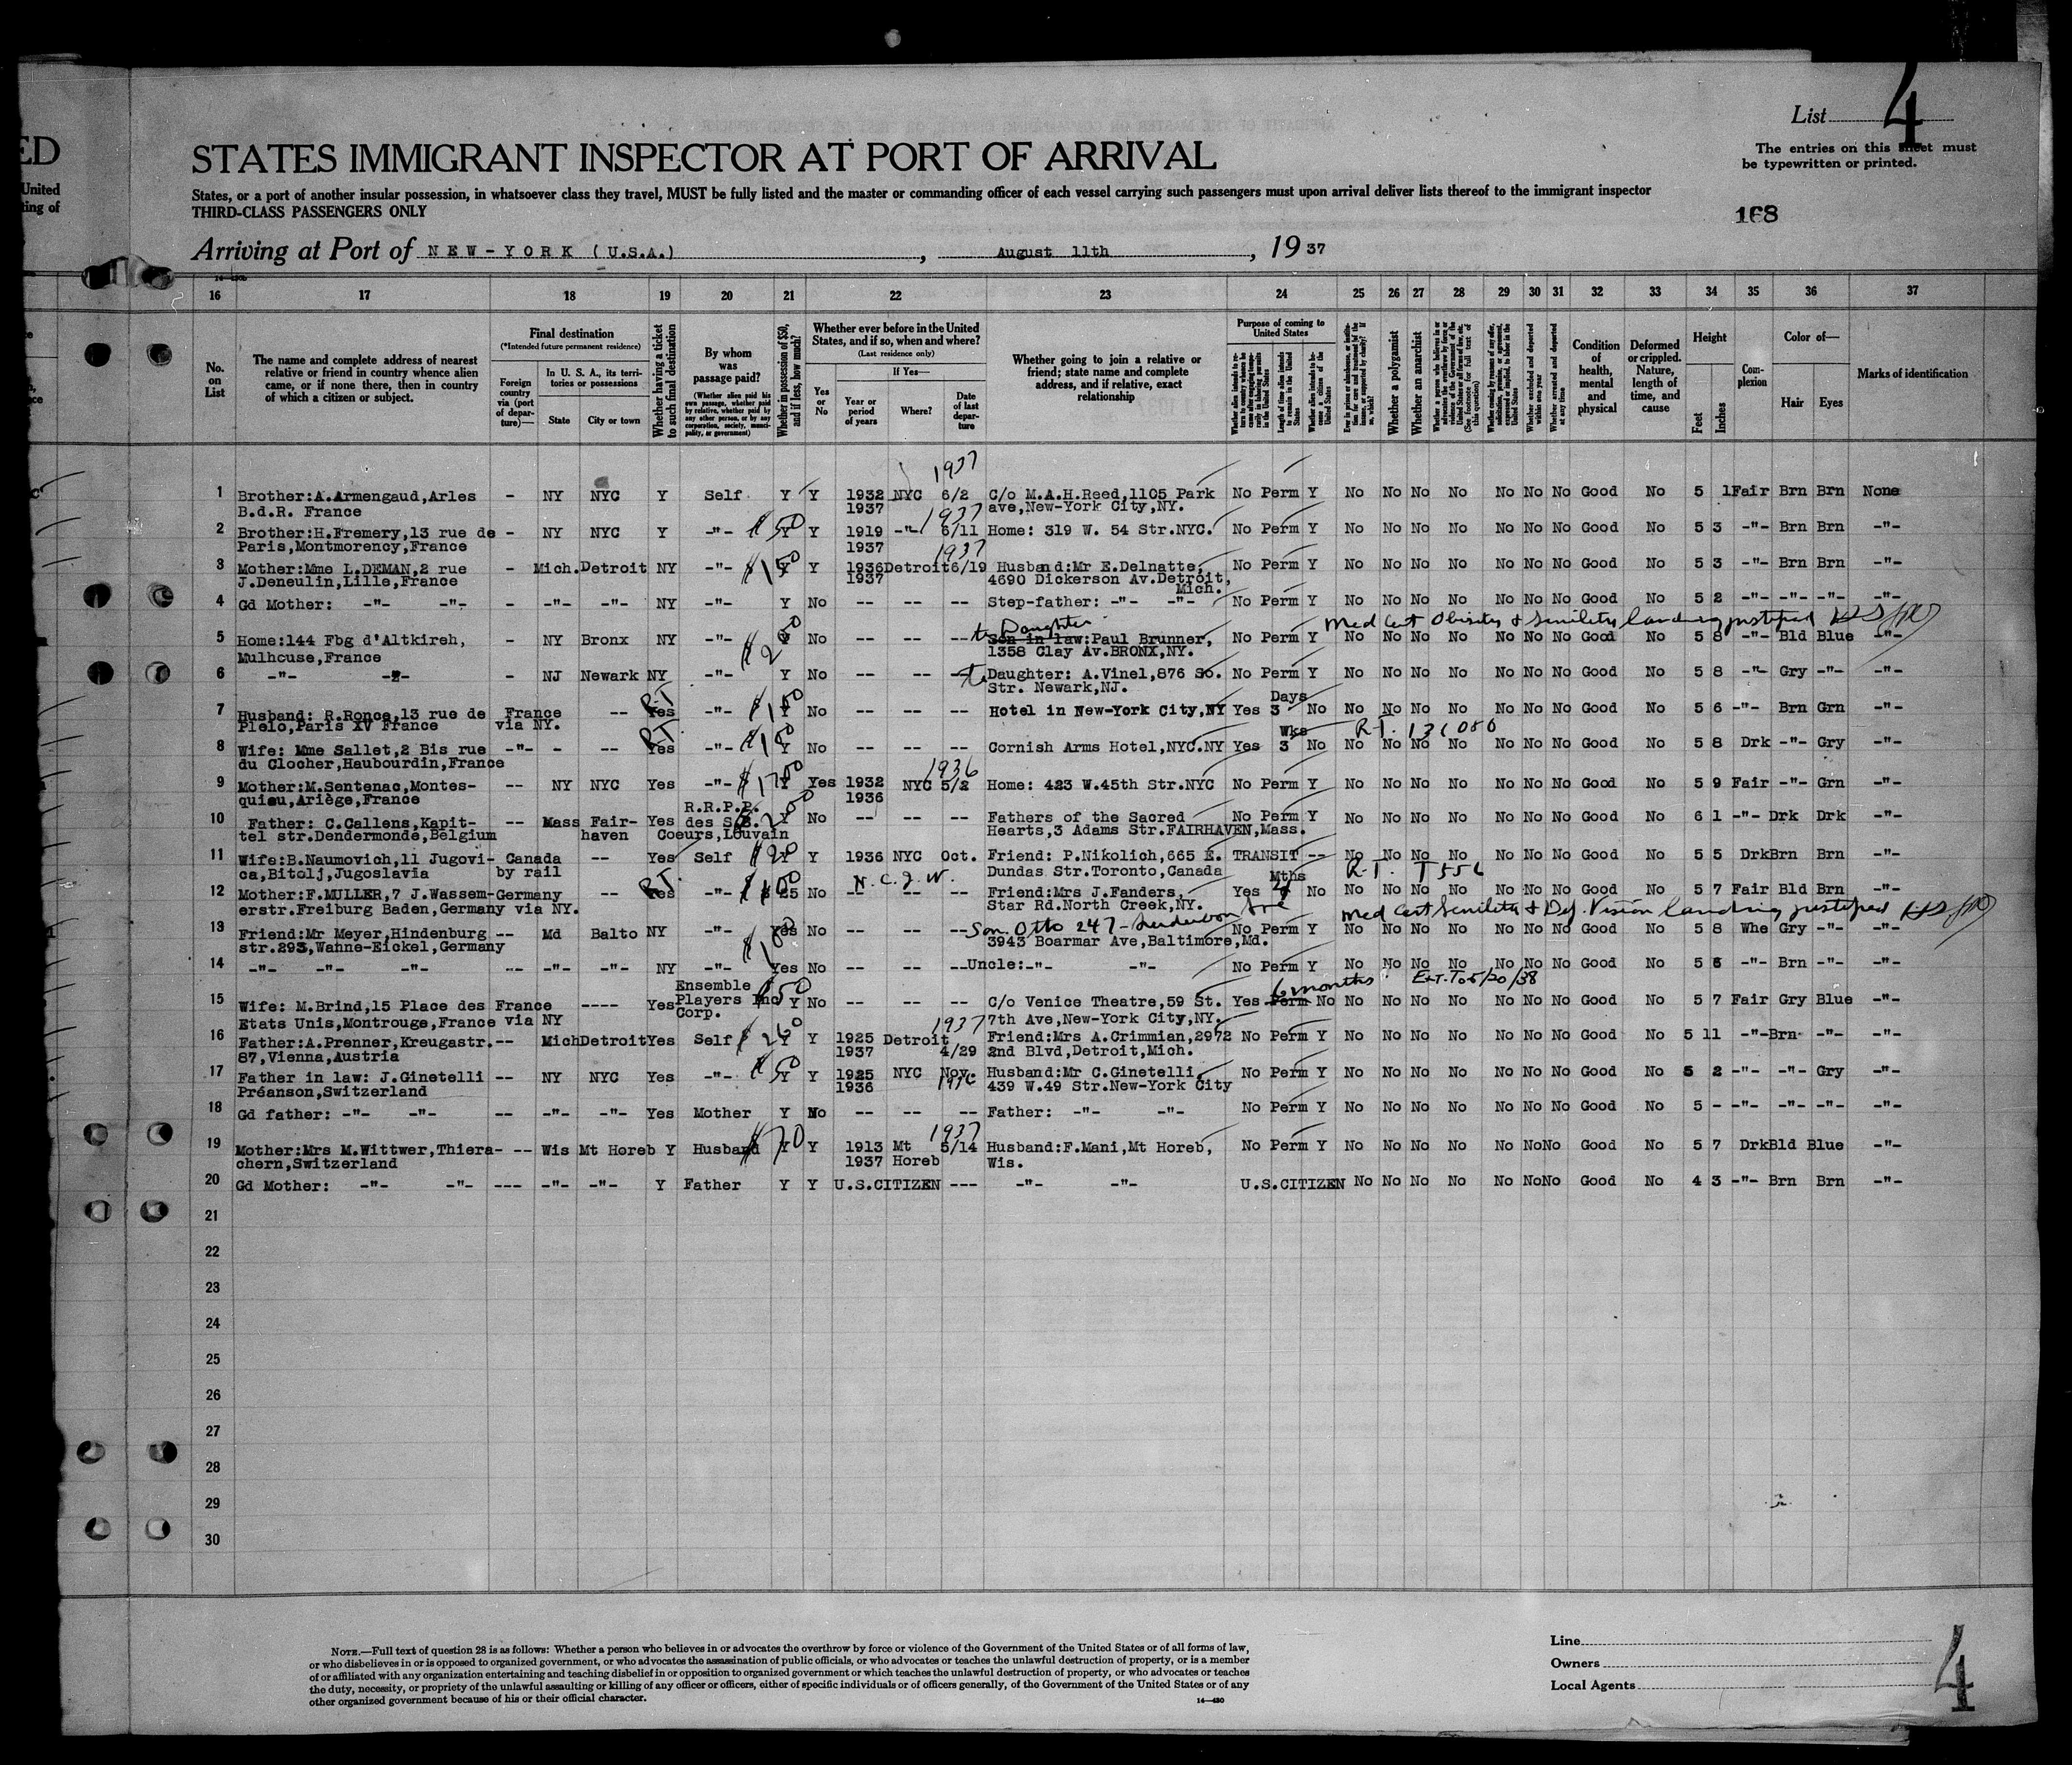 List 4
The entries on this sheet must
be typewritten or printed.
ED
STATES IMMIGRANT INSPECTOR AT PORT OF ARRIVAL
United
ting of
States, or a port of another insular possession, in whatsoever class they travel, MUST be fully listed and the master or commanding officer of each vessel carrying such passengers must upon arrival deliver lists thereof to the immigrant inspector
THIRD-CLASS PASSENGERS ONLY
168
Arriving at Port of NEW-YORK (U.S.A.), August 11th, 1937
16 17 18 19 20 21 22 23 24 25 26 27 28 29 30 31 32 33 34 35 36 37
No. on List
The name and complete address of nearest relative or friend in country whence alien came, or if none there, then in country of which a citizen or subject.
Final destination
(*Intended future permanent residence)
Foreign country via (port of departure)—
In U. S. A., its territories or possessions
State
City or town
Whether having a ticket to such final destination
By whom was passage paid?
(Whether alien paid his own passage, whether paid by relative, whether paid by any other person, or by any corporation, society, municipality, or government)
Whether in possession of $50, and if less, how much?
Whether ever before in the United States, and if so, when and where?
(Last residence only)
Yes or No
If Yes—
Year or period of years
Where?
Date of last departure
Whether going to join a relative or friend; state name and complete address, and if relative, exact relationship
Purpose of coming to United States
Length of time alien intends to remain in the United States
Whether alien intends to become a citizen of the United States
Whether a polygamist
Whether an anarchist
Whether excluded and deported within one year
Whether arrested and deported at any time
Condition of health, mental and physical
Deformed or crippled. Nature, length of time, and cause
Height
Feet
Inches
Complexion
Color of—
Hair
Eyes
Marks of identification
1937
1 Brother:A.Armengaud,Arles - NY NYC Y Self Y Y 1932 NYC 6/2 C/o M.A.H.Reed,1105 Park No Perm Y No No No No No No No Good No 5 1 Fair Brn Brn None
B.d.R. France 1937 ave,New-York City,NY.
1937
2 Brother:H.Fremery,13 rue de - NY NYC Y -"- $50 Y Y 1919 -"- 6/11 Home: 319 W. 54 Str.NYC. No Perm Y No No No No No No No Good No 5 3 -"- Brn Brn -"-
Paris,Montmorency,France 1937
1937
3 Mother:Mme L.DEMAN,2 rue - Mich. Detroit NY -"- $150 Y Y 1936 Detroit 6/19 Husband:Mr E.Delnatte, No Perm Y No No No No No No No Good No 5 3 -"- Brn Brn -"-
J.Deneulin,Lille,France 1937 4690 Dickerson Av.Detroit,
Mich.
4 Gd Mother: -"- -"- - -"- -"- NY -"- Y No -- -- -- Step-father: -"- -"- No Perm Y No No No No No No No Good No 5 2 -"- -"- -"- -"-
Daughter Med Cert Obesity & Senility landing justified
5 Home:144 Fbg d'Altkirch, - NY Bronx NY -"- $200 Y No -- -- -- Son in law:Paul Brunner, No Perm Y No No No No No No No Good No 5 8 -"- Bld Blue -"-
Mulhouse,France 1358 Clay Av.BRONX,NY.
6 -"- -"- - NJ Newark NY -"- Y No -- -- -- to Daughter: A.Vinel,876 So. No Perm Y No No No No No No No Good No 5 8 -"- Gry -"- -"-
Str. Newark,NJ.
RT Days
7 Husband: R.Ronce,13 rue de France -- Yes -"- $100 Y No -- -- -- Hotel in New-York City,NY Yes 3 No No No No No No No No Good No 5 6 -"- Brn Grn -"-
Plelo,Paris XV France via NY.
RT Wks R.T. 131086
8 Wife: Mme Sallet,2 Bis rue -"- - -- Yes -"- $100 Y No -- -- -- Cornish Arms Hotel,NYC.NY Yes 3 No No No No No No No No Good No 5 8 Drk -"- Gry -"-
du Clocher,Haubourdin,France
1936
9 Mother:M.Sentenac,Montes- -- NY NYC Yes -"- $1700 Y Yes 1932 NYC 5/2 Home: 423 W.45th Str.NYC No Perm Y No No No No No No No Good No 5 9 Fair -"- Grn -"-
quieu,Ariège,France 1936
R.R.P.P.
10 Father: C.Callens,Kapit- -- Mass Fair- Yes des S.S. $200 Y No -- -- -- Fathers of the Sacred No Perm Y No No No No No No No Good No 6 1 -"- Drk Drk -"-
tel str.Dendermonde,Belgium haven Coeurs,Louvain Hearts,3 Adams Str.FAIRHAVEN,Mass.
11 Wife:B.Naumovich,11 Jugovi- Canada -- Yes Self $90 Y Y 1936 NYC Oct. Friend: P.Nikolich,665 E. TRANSIT -- No No No No No No No Good No 5 5 Drk Brn Brn -"-
ca,Bitolj,Jugoslavia by rail Dundas Str.Toronto,Canada
RT N.C.J.W. Mths R.T. T556
12 Mother:F.MULLER,7 J.Wassem- Germany -- Yes -"- $100 $25 No -- -- -- Friend:Mrs J.Fanders, Yes 4 No No No No No No No No Good No 5 7 Fair Bld Brn -"-
erstr.Freiburg Baden,Germany via NY. Star Rd.North Creek,NY.
Son Otto 247- Ave Med Cert Senility & Def. Vision landing justified
13 Friend:Mr Meyer,Hindenburg -- Md Balto NY -"- $100 Yes No -- -- -- No Perm Y No No No No No No No Good No 5 8 Whe Gry -"- -"-
str.293,Wahne-Eickel,Germany 3943 Boarmar Ave,Baltimore,Md.
14 -"- -"- -"- -- -"- -"- NY -"- Yes No -- -- -- Uncle:-"- -"- No Perm Y No No No No No No No Good No 5 6 -"- Brn -"- -"-
Ensemble 6 months Ext. To 5/20/38
15 Wife: M.Brind,15 Place des France ---- Yes Players Inc $50 Y No -- -- -- C/o Venice Theatre,59 St. Yes Perm No No No No No No No No Good No 5 7 Fair Gry Blue -"-
Etats Unis,Montrouge,France via NY Corp. 7th Ave,New-York City,NY.
1937
16 Father:A.Prenner,Kreugastr.-- Mich Detroit Yes Self $260 Y Y 1925 Detroit Friend:Mrs A.Crimmian,2972 No Perm Y No No No No No No No Good No 5 11 -"- Brn -"- -"-
87,Vienna,Austria 1937 4/29 2nd Blvd,Detroit,Mich.
17 Father in law: J.Ginetelli -- NY NYC Yes -"- $50 Y Y 1925 NYC Nov. Husband:Mr C.Ginetelli, No Perm Y No No No No No No No Good No 5 2 -"- -"- Gry -"-
Préanson,Switzerland 1936 1936 439 W.49 Str.New-York City
18 Gd father: -"- -"- -- -"- -"- Yes Mother Y No -- -- -- Father: -"- -"- No Perm Y No No No No No No No Good No 5 - -"- -"- -"- -"-
1937
19 Mother:Mrs M.Wittwer,Thiera- -- Wis Mt Horeb Y Husband $70 Y Y 1913 Mt 5/14 Husband:F.Mani,Mt Horeb, No Perm Y No No No No No No No Good No 5 7 Drk Bld Blue -"-
chern,Switzerland 1937 Horeb Wis.
20 Gd Mother: -"- -"- --- -"- -"- Y Father Y Y U.S.CITIZEN --- -"- -"- U.S.CITIZEN No No No No No No No Good No 4 3 -"- Brn Brn -"-
21
22
23
24
25
26
27
28
29
30
NOTE.—Full text of question 28 is as follows: Whether a person who believes in or advocates the overthrow by force or violence of the Government of the United States or of all forms of law,
or who disbelieves in or is opposed to organized government, or who advocates the assassination of public officials, or who advocates or teaches the unlawful destruction of property, or is a member
of or affiliated with any organization entertaining and teaching disbelief in or opposition to organized government or which teaches the unlawful destruction of property, or who advocates or teaches
the duty, necessity, or propriety of the unlawful assaulting or killing of any officer or officers, either of specific individuals or of officers generally, of the Government of the United States or of any
other organized government because of his or their official character.
14—430
Line
Owners
Local Agents
4